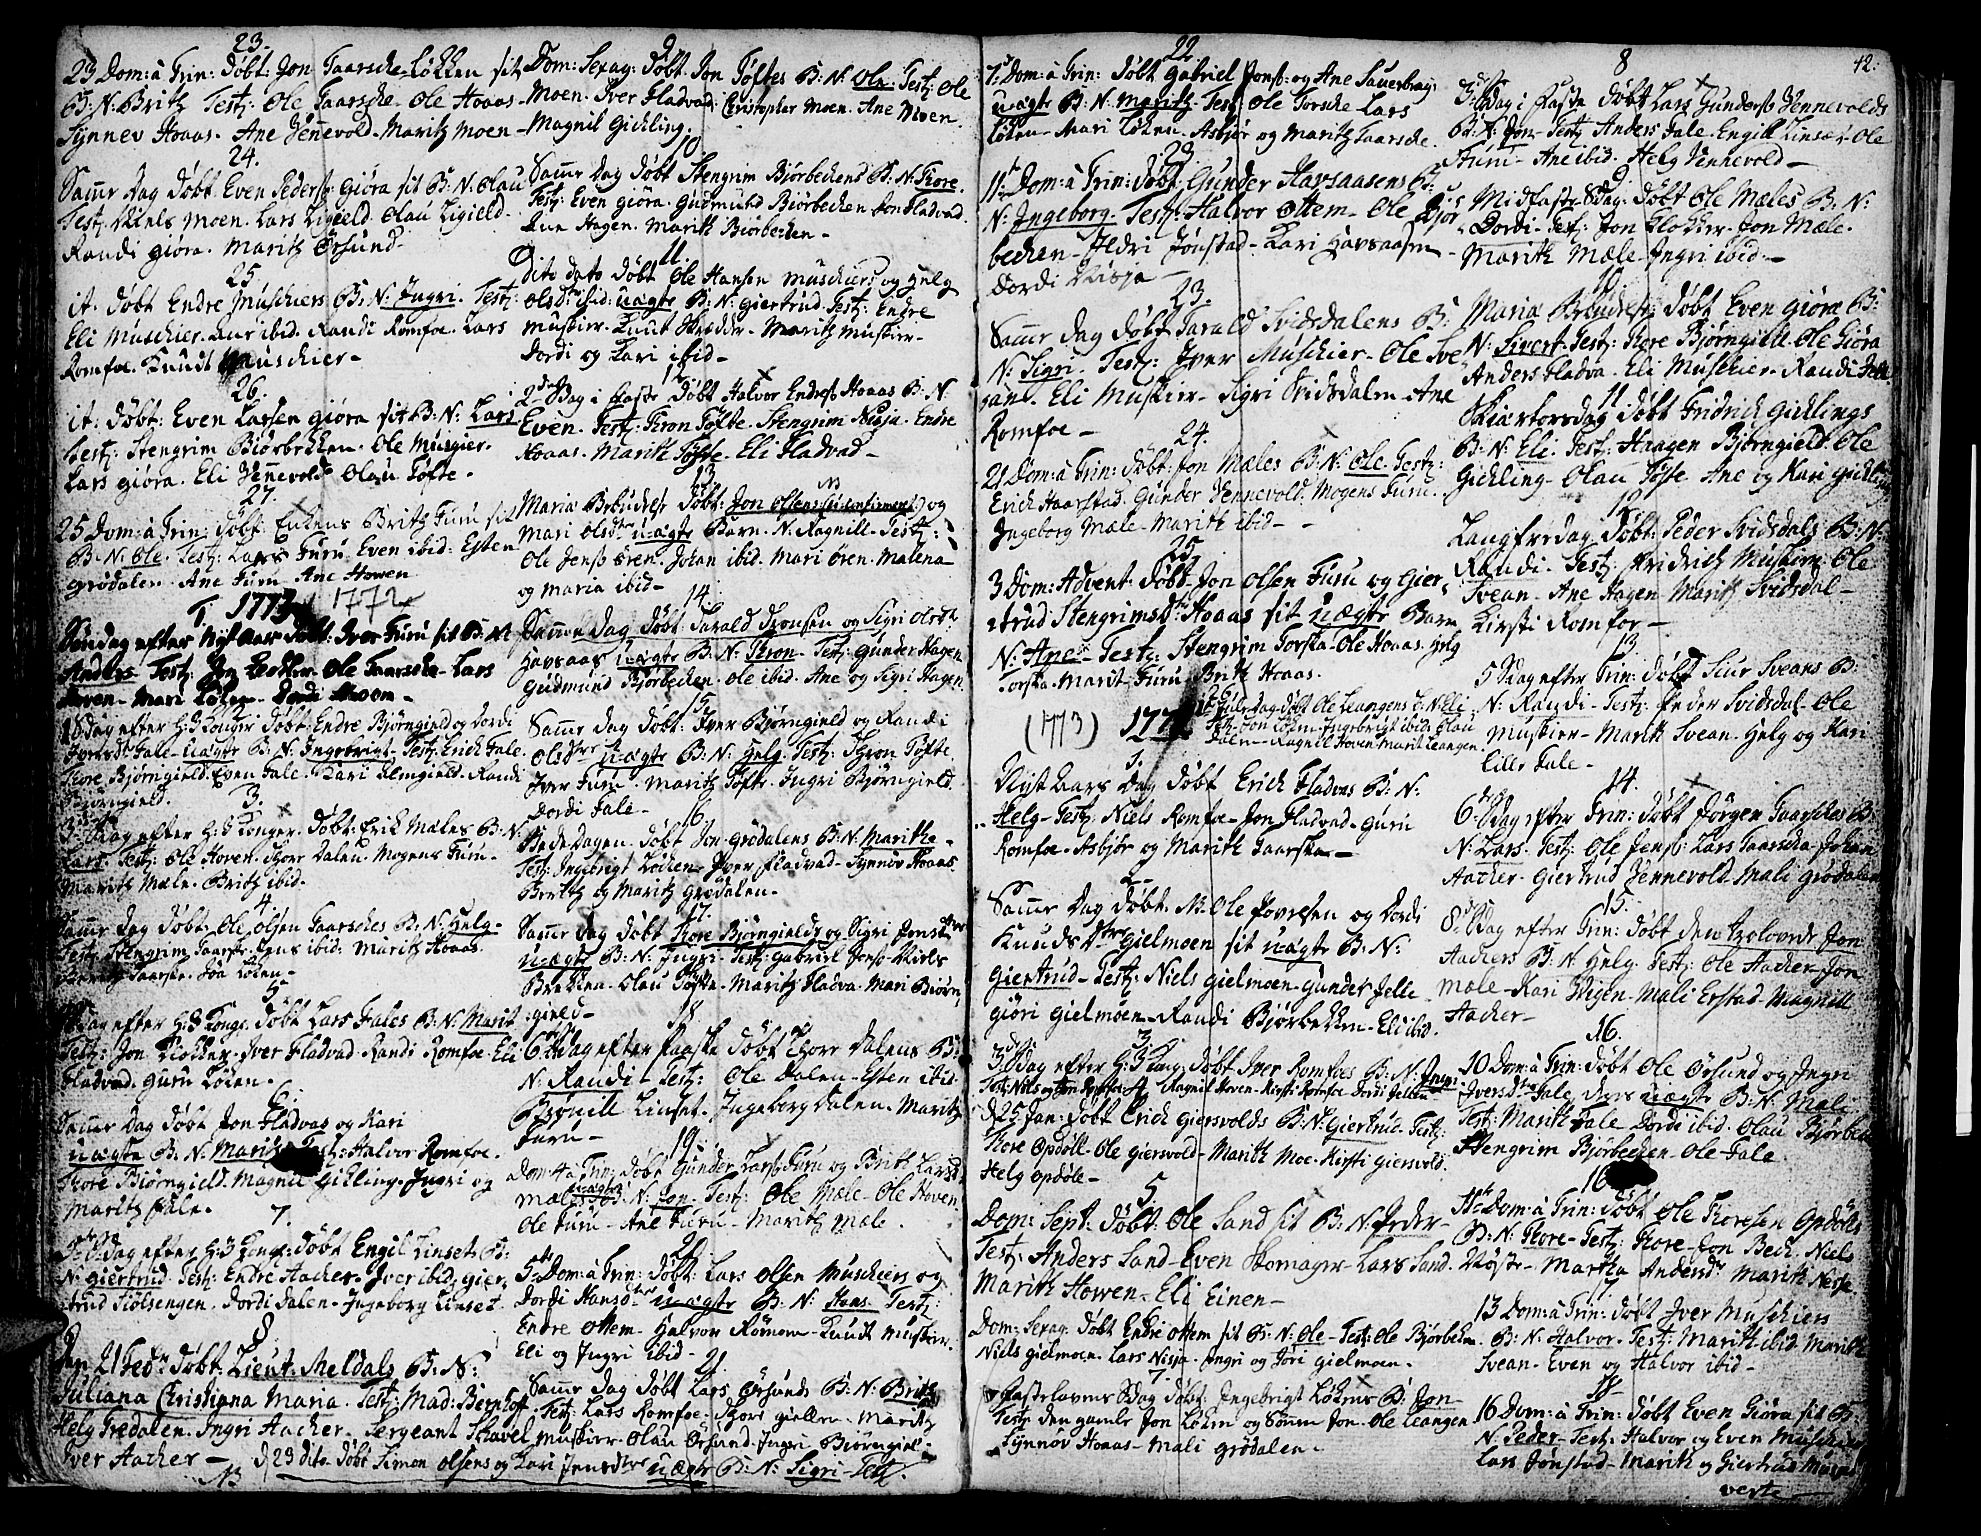 23.
23 Dom: à Trin: Døbt Jon Taarsche Løkken sit
B: N. Brit Test: Ole Taarsche. Ole Hoaas
Synnev Hoaas. Ane Jennevold. Marit Moen
24.
Samme Dag Døbt Even Peders: Giøra sit B: N. Olau
Test: Niels Moen. Lars Ligield. Olau Ligield.
Randi Giøra. Marit Ørsund.
25.
it. Døbt Endre Muschiers B: N: Ingri. Test:
Eli Muschier. ibid. Randi Romfoe. Lars
Romfoe. Knudt Muschier
26.
it: Døbt Even Larsen Giøra sit B: N: Lars
Test: Stengrim Biørbekken. Ole Musgier.
Lars Giøra. Eli Jennevold. Olau Tøfte.
27.
25 Dom: à Trin: Døbt Furu sit
B: N: Ole. Test: Lars Furu. Even ibid: Esten
Grødalen. Ane Furu. Ane Howen
1773 1772
Søndag efter Nyt Aar Døbt: Iver Furu sit B: N:
Anders Test: Jon Løkken. Ole Taarsche. Lars
Hoven. Mari Løken. Dordi Moen
1 S:dag efter H: 3 Konger Døbt: Endre Bjørngield og Dordi
Fale uægte B: N: Ingebrigt. Test: Erich Fale
Tore Bjørngield. Even Fale. Kari Almgield. Randi
Bjørngield.
3.
3 S:dag efter H: 3 Konger. Døbt: Erik Mæles B: N:
Lars. Test: Ole Hoven. Thore Dalen. Mogens Furu.
Marit Mæle. Brit ibid.
4.
Samme Dag Døbt. Ole Olsen Taarsches B: N: Helg
Test: Stengrim Taarsche. Jens ibid: Marit Hoaas
Taarsche. Løken
5.
S:dag efter H: 3 Kong: Døbt Lars Fales B: N: Marit
Test: Jon Klokker. Iver Fladvad. Randi Romfoe. Eli
Fladvad. Guru Løken.
6.
Samme Dag Døbt Jon Fladvas og Kari
uægte B: N. Marit Test: Halvor Romfoe.
Thore Biørngield. Magnil Gikling. Ingri og
Marit Fale.
7.
S:dag efter H: 3 Kong: Døbt Engil Linsets B:
N: Giertrud. Test: Endre Aacher. Iver ibid. Gier-
trud Fiølsengen. Dordi Dalen. Ingeborg Linset.
8
Den 21 Febr: Døbt: Lieut. Meldals B: N:
Juliana Christiana Maria. Test: Mad: Bernhoft
Helg Tredalen. Ingri Aacher. Sergeant Skavel
Iver Aacher
9.
Dom: Sexag: Døbt Jon Tøftes B: N: Ole. Test: Ole
Moen. Iver Fladvad. Christopher Moen. Ane Moen.
Magnil Gickling.
10
Samme Dag Døbt Stengrim Bjørbeckens B: N: Tore.
Test: Even Giøra. Gudmund Bjørbecken. Jon Fladvad.
Ane Hagen. Marit Bjørbecken
11.
Dito dato Døbt Ole Hansen Muschiers og Helg
Olsdtr ibid: uægte B: N: Giertrud. Test: Endre
Muskier. Knut Skredder. Marit Muskier
Dordi og Kari ibid
12
2den S:dag i Faste Døbt Halvor Endres: Hoaas B: N.
Even. Test: Tron Tøfte. Stengrim Nisja. Endre
Hoaas. Marit Tøfte. Eli Fladvad
13
Maria Bebudelse Døbt: Jon Olsens og
Mari Olsdtr uægte Barn N. Ragnill. Test:
Ole Jens: Øren. Johan ibid. Mari Øren. Malena
og Maria ibid
14.
Samme Dag Døbt Tarald Tronsen og Sigri Olsdtr
Havsaas uægte B: N: Tron. Test: Gunder Hagen
Gudmund Bjørbecken. Ole ibid. Ane og Sigri Hagen.
5.
Samme Dag Døbt: Iver Bjørngield og Randi
Olsdtr uægte B: N: Helg. Test: Thron Tøfte.
Iver Furu. Marit Tøfte. Ingri Bjørngield.
Dordi Fale
6.
Bededagen. Døbt Jon Grødalens B: N: Marithe
Test: Ingebrigt Løcken. Iver Fladvad. Synnøv Hoaas
Berit og Marit Grødalen.
17.
Samme dag Døbt Tore Bjørngields og Sigri Jonsdtr
uægte B: N: Ingri. Test: Gabriel Jons: Niels
Brekken. Olau Tøfte. Marit Fladva. Mari Biørn
gield
18.
6 S:dag efter Paaske Døbt Thore Dalens B:
N: Randi. Test: Ole Dalen. Esten ibid.
Brønill Linset. Ingeborg Dalen. Marit
Furu
19.
Dom: 4 à Trin: Døbt Gunder Lars: Furu og Brit Larsd:
Mæles uægte B: N: Jon. Test: Ole Mæle. Ole Hoven.
Ole Furu. Ane Furu. Marit Mæle.
20.
5 Dom: à Trin: Døbt: Lars Olsen Muschiers og
Dordi Hansdtr uægte B: N: Hans. Test:
Endre Ottem. Halvor Romoen. Knudt Muskier.
Eli og Ingri ibid.
21.
Samme Dag Døbt Lars Ørsunds B: N: Brit
Test: Lars Romfoe. Thore Marit
Muskier. Olau Ørsund. Ingri Biørngiel.
d 23 dito. Døbt Simon Olsens og Kari Jensdtr uægte B: N: Sigri. Test.
NB
22
7 Dom: à Trin: Døbt Gabriel Jons: og Ane Sauerbrag:
uægte B: N. Marit. Test: Ole Torsche Lars
Løken. Mari Løken. Asbjør og Marit Taarsche.
11 Dom: à Trin: Døbt Gunder Havsaasens B:
N: Ingeborg. Test: Halvor Ottem. Ole Bjør
becken. Ildri Jønstad. Kari Havsaasen
Dordi Nisja
23.
Samme Dag Døbt Tarald Svidsdalens B:
N: Sigri. Test: Iver Muschier. Ole Sve
jan. Eli Muskier. Sigri Svidsdalen. Ane
Romfoe
24.
21 Dom: à Trin: Døbt: Jon Mæles B: N: Ole. Test:
Erich Haarstad. Gunder Jennevold. Mogens Furu.
Ingeborg Mæle. Marit ibid
25.
3 Dom: Advent Døbt Jon Olsen Furu og Gier
trud Stengrimsdtr Hoaas sit uægte Barn
N: Ane. Test: Stengrim Torske. Ole Hoaas. Helg
Torske. Marit Furu. Brit Hoaas.
26
Juledag døbt Ole Leangens B: N: Eli
Test: Jon Løken. Ingebrigt ibid. Olau
Dalen. Ragnil Hoven. Marit Leangen
(1773) 177
1.
Nyt Aars Dag Døbt Erich Fladvas B: N:
Helg. Test: Niels Romfoe. Jon Fladvad. Guru
Romfoe. Asbjør og Marit Taarske
2
Samme Dag Døbt. Ole Iversen og Dordi
Knudsdtr Gielmoen sit uægte B: N:
Giertrud. Test: Niels Gielmoen. Gunder Jelle
Giøri Gielmoen. Randi Bjørbekken. Eli ibid.
3.
3 S:dag efter H: 3 Kong: Døbt Iver Romfoes B: N: Ingri
Test: Niels og Jon Romfoe. Ragnil Hoven. Kirsti Romfoe. Dordi
d 25 Jan: Døbt Erich Giersvolds B: N: Giertrud. Test:
Thore Opdøll. Ole Giersvold. Marit Moe. Kirsti Giersvold.
Helg Opdøle
5.
Dom: Sept: Døbt: Ole Sand sit B: N: Peder
Test: Anders Sand. Even Skomager. Lars Sand.
Marit Howen. Eli Einen
Dom: Sexag. Døbt Endre Ottem sit B: N: Ole. Test: Ole Bjørbeken.
Niels Gielmoen. Lars Nisja. Ingri og Jøri Gielmoen.
7
Fastelavens S:dag Døbt: Ingebrigt Løkens B: Jon
Test: den gamle Jon Løken og Sønnen Jon. Ole Leangen
Synnøv Hoaas. Mali Grødalen.
8
42.
3 S:dag i Faste Døbt Lars Gunders: Jennevolds
B: N: Jon. Test: Anders Fale. Engill Linset. Ole
Furu. Ane ibid. Helg Jennevold
9
Midfaste S:dag: Døbt Ole Mæles B: N:
Dordi. Test: Jon Klokker. Jon Mæle.
Marit Mæle. Ingri ibid.
10.
Maria Bebudelse Døbt Even Giøra B:
N: Sivert. Test: Tore Bjørngield. Ole Giøra
Anders Fladva. Eli Muschier. Randi
11
Skiærtorsdag Døbt Fridrich Gicklings
B: N: Eli. Test: Haagen Bjørngield. Ole
Gickling. Olau Tøfte Ane og Kari Gickling
12.
Langfredag Døbt: Peder Svidsdals B: N:
Randi. Test: Fridrich Muskier. Ole
Svean. Ane Hagen. Marit Svidsdal
Kirsti Romfoe
13
5 S:dag efter Trin: Døbt Siur Sveans B:
N: Randi. Test: Peder Svidsdal. Ole
Muskier. Marit Svean. Helg og Kari
Lille Fale.
14.
6 S:dag efter Trin: Døbt Jørgen Taarsches B:
N: Lars. Test: Ole Jens: Lars Taarsche. Johan
Aacher. Giertrud Jennevold. Mali Grødalen
15.
8 S:dag efter Trin: Døbt den trolovede Jon
Aachers B: N. Helg. Test: Ole Aacher. Jon
Mæle. Kari Wigen. Mali Erstad. Magnill
Aacher
16.
10 Dom: à Trin: Døbt Ole Ørsund og Ingri
Iversdtr Fale deres uægte B: N. Mali
Test: Marit Fale. Dordi ibid. Olau Bjørbek
Stengrim Bjørbecken. Ole Fale.
16
11te Dom: à Trin: Døbt Ole Thoresen Opdøls
B: N: Thore. Test: Thore. Jon Bech. Niels
Nøste. Martha Andersdtr Marit Neste.
17
13 Dom: à Trin: Døbt Iver Muschiers
B: N: Halvor. Test: Marit ibid. Marit
Svean. Even og Halvor ibid
18
16 Dom: à Trin: Døbt Even Giøra sit B:
N. Peder. Test: Halvor og Even Muschier
Lars Jønstad. Marit og Giertrud
verte